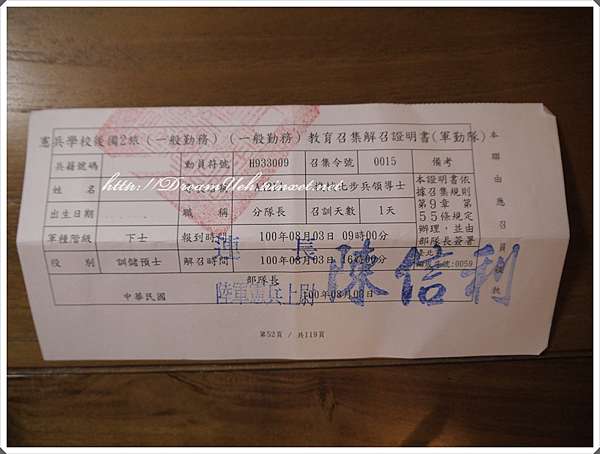 憲兵學校後國2旅(一般勤務)(一般勤務)教育召集解召證明書(軍勤隊)
兵籍號碼 動員符號 H933009 召集令號 0015 備考
姓名
出生日期 職稱 分隊長 召訓天數 1天
軍種階級 下士 報到時間 100年08月03日 09時00分
役別 訓儲預士 解召時間 100年08月03日 16時00分
本證明書依
據召集規則
第9章第
55條規定
辦理,並由
部隊長簽署
部隊長
連長 陳信利
陸軍憲兵上尉
中華民國 100年08月03日
第52頁 / 共119頁
本聯由應召員
http://DreamYeh.pixnet.net